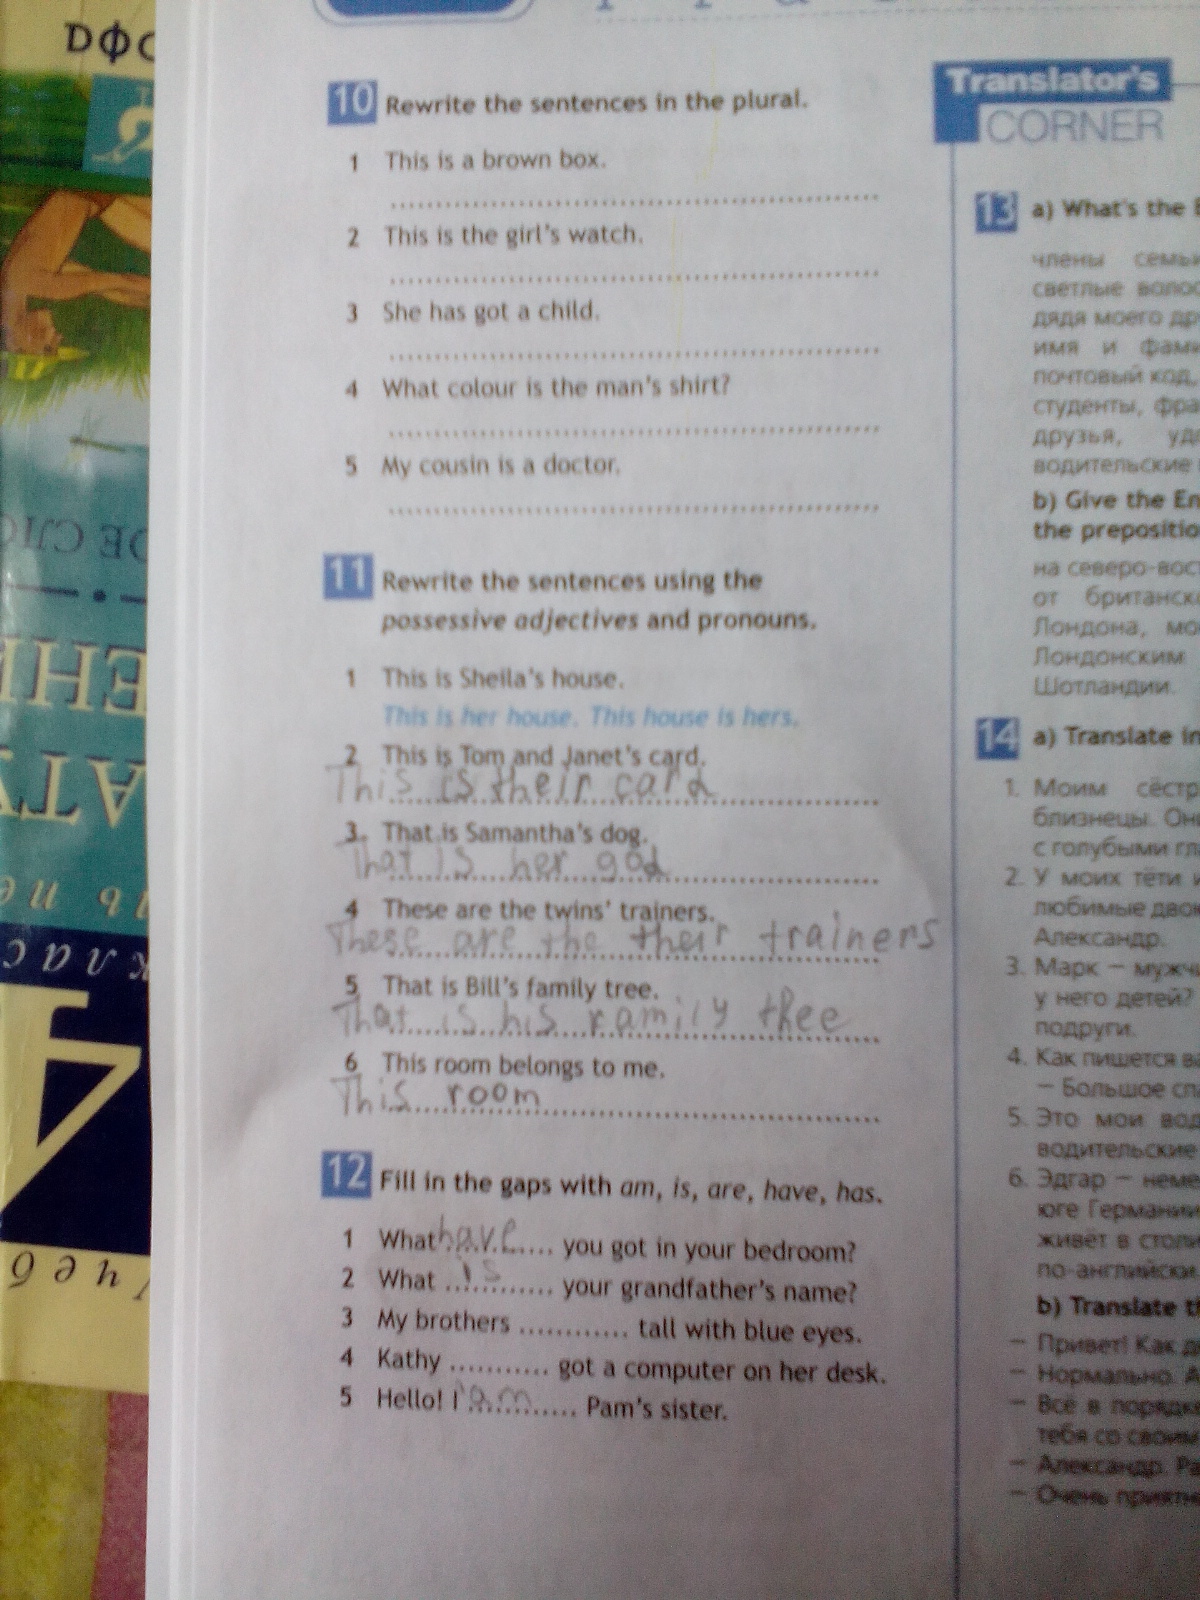 10 Rewrite the sentences in the plural.
1 This is a brown box.
2 This is the girl's watch.
3 She has got a child.
4 What colour is the man's shirt?
5 My cousin is a doctor.
11 Rewrite the sentences using the
possessive adjectives and pronouns.
1 This is Sheila's house.
This is her house. This house is hers.
2 This is Tom and Janet's card.
This is their card
3. That is Samantha's dog.
That is her god
4 These are the twins' trainers.
These are the their trainers
5 That is Bill's family tree.
That is his family
6 This room belongs to me.
This room
12 Fill in the gaps with am, is, are, have, has.
1 What have you got in your bedroom?
2 What is your grandfather's name?
3 My brothers ............ tall with blue eyes.
4 Kathy ........... got a computer on her desk.
5 Hello! I am Pam's sister.
Translator's
CORNER
13 a) What's the
члены
светлые
дядя моего
имя и
почтовый код,
студенты,
друзья,
водительские
b) Give the
the
на
от
Лондона,
Лондонским
Шотландии.
14 a) Translate
1. Моим
близнецы.
с голубыми
2. У моих тёти и
любимые
Александр.
3. Марк –
у него детей?
подруги.
4. Как пишется
– Большое
5. Это мои
водительские
6. Эдгар –
юге Германии
живёт в
по-английски.
b) Translate
– Привет! Как
– Нормально. А
– Всё в порядке
тебя со своим
– Александр.
– Очень
4